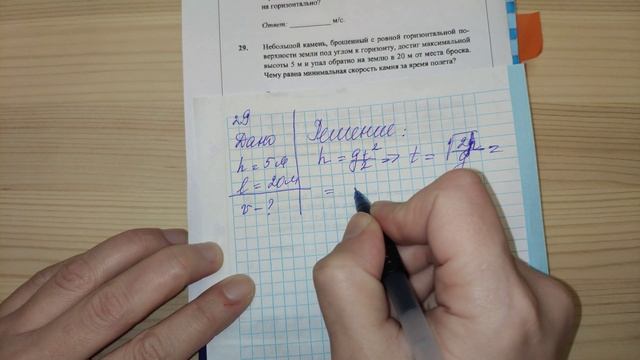 на горизонтально?
Ответ: ____________ м/с.
29. Небольшой камень, брошенный с ровной горизонтальной по-
верхности земли под углом к горизонту, достиг максимальной
высоты 5 м и упал обратно на землю в 20 м от места броска.
Чему равна минимальная скорость камня за время полета?
29
Дано
Решение:
h = 5м
h = gt²/2 => t = √2h/g =
l = 20м
=
v - ?